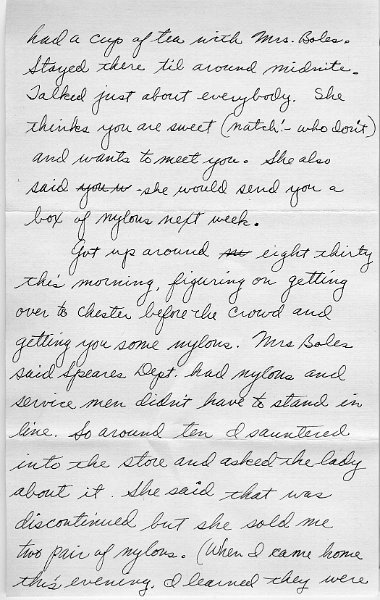 had a cup of tea with Mrs. Boles.
Stayed there til around midnite.
Talked just about everybody. She
thinks you are sweet (natch! - who don't)
and wants to meet you. She also
said you w - she would send you a
box of nylons next week.
Got up around eight thirty
this morning, figuring on getting
over to Chester before the crowd and
getting you some nylons. Mrs Boles
said Speares Dept. had nylons and
service men didn't have to stand in
line. So around ten I sauntered
into the store and asked the lady
about it. She said that was
discontinued but she sold me
two pair of nylons. (When I came home
this evening, I learned they were